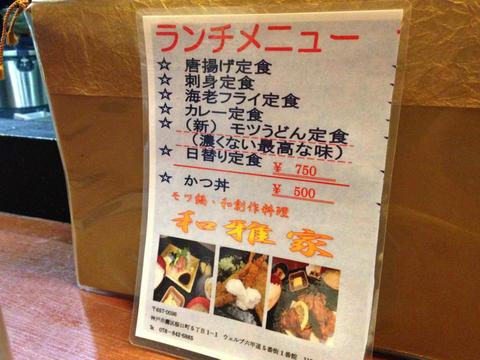 ランチメニュー
☆ 唐揚げ定食
☆ 刺身定食
☆ 海老フライ定食
☆ カレー定食
☆ （新）モツうどん定食
（濃くない最高な味）
☆ 日替り定食 ￥ 750
☆ かつ丼 ￥ 500
モツ鍋・和創作料理
和雅家
神戸市灘区桜口町5丁目1-1 ウェルブ六甲道5番街1番館
℡ 078-842-6885